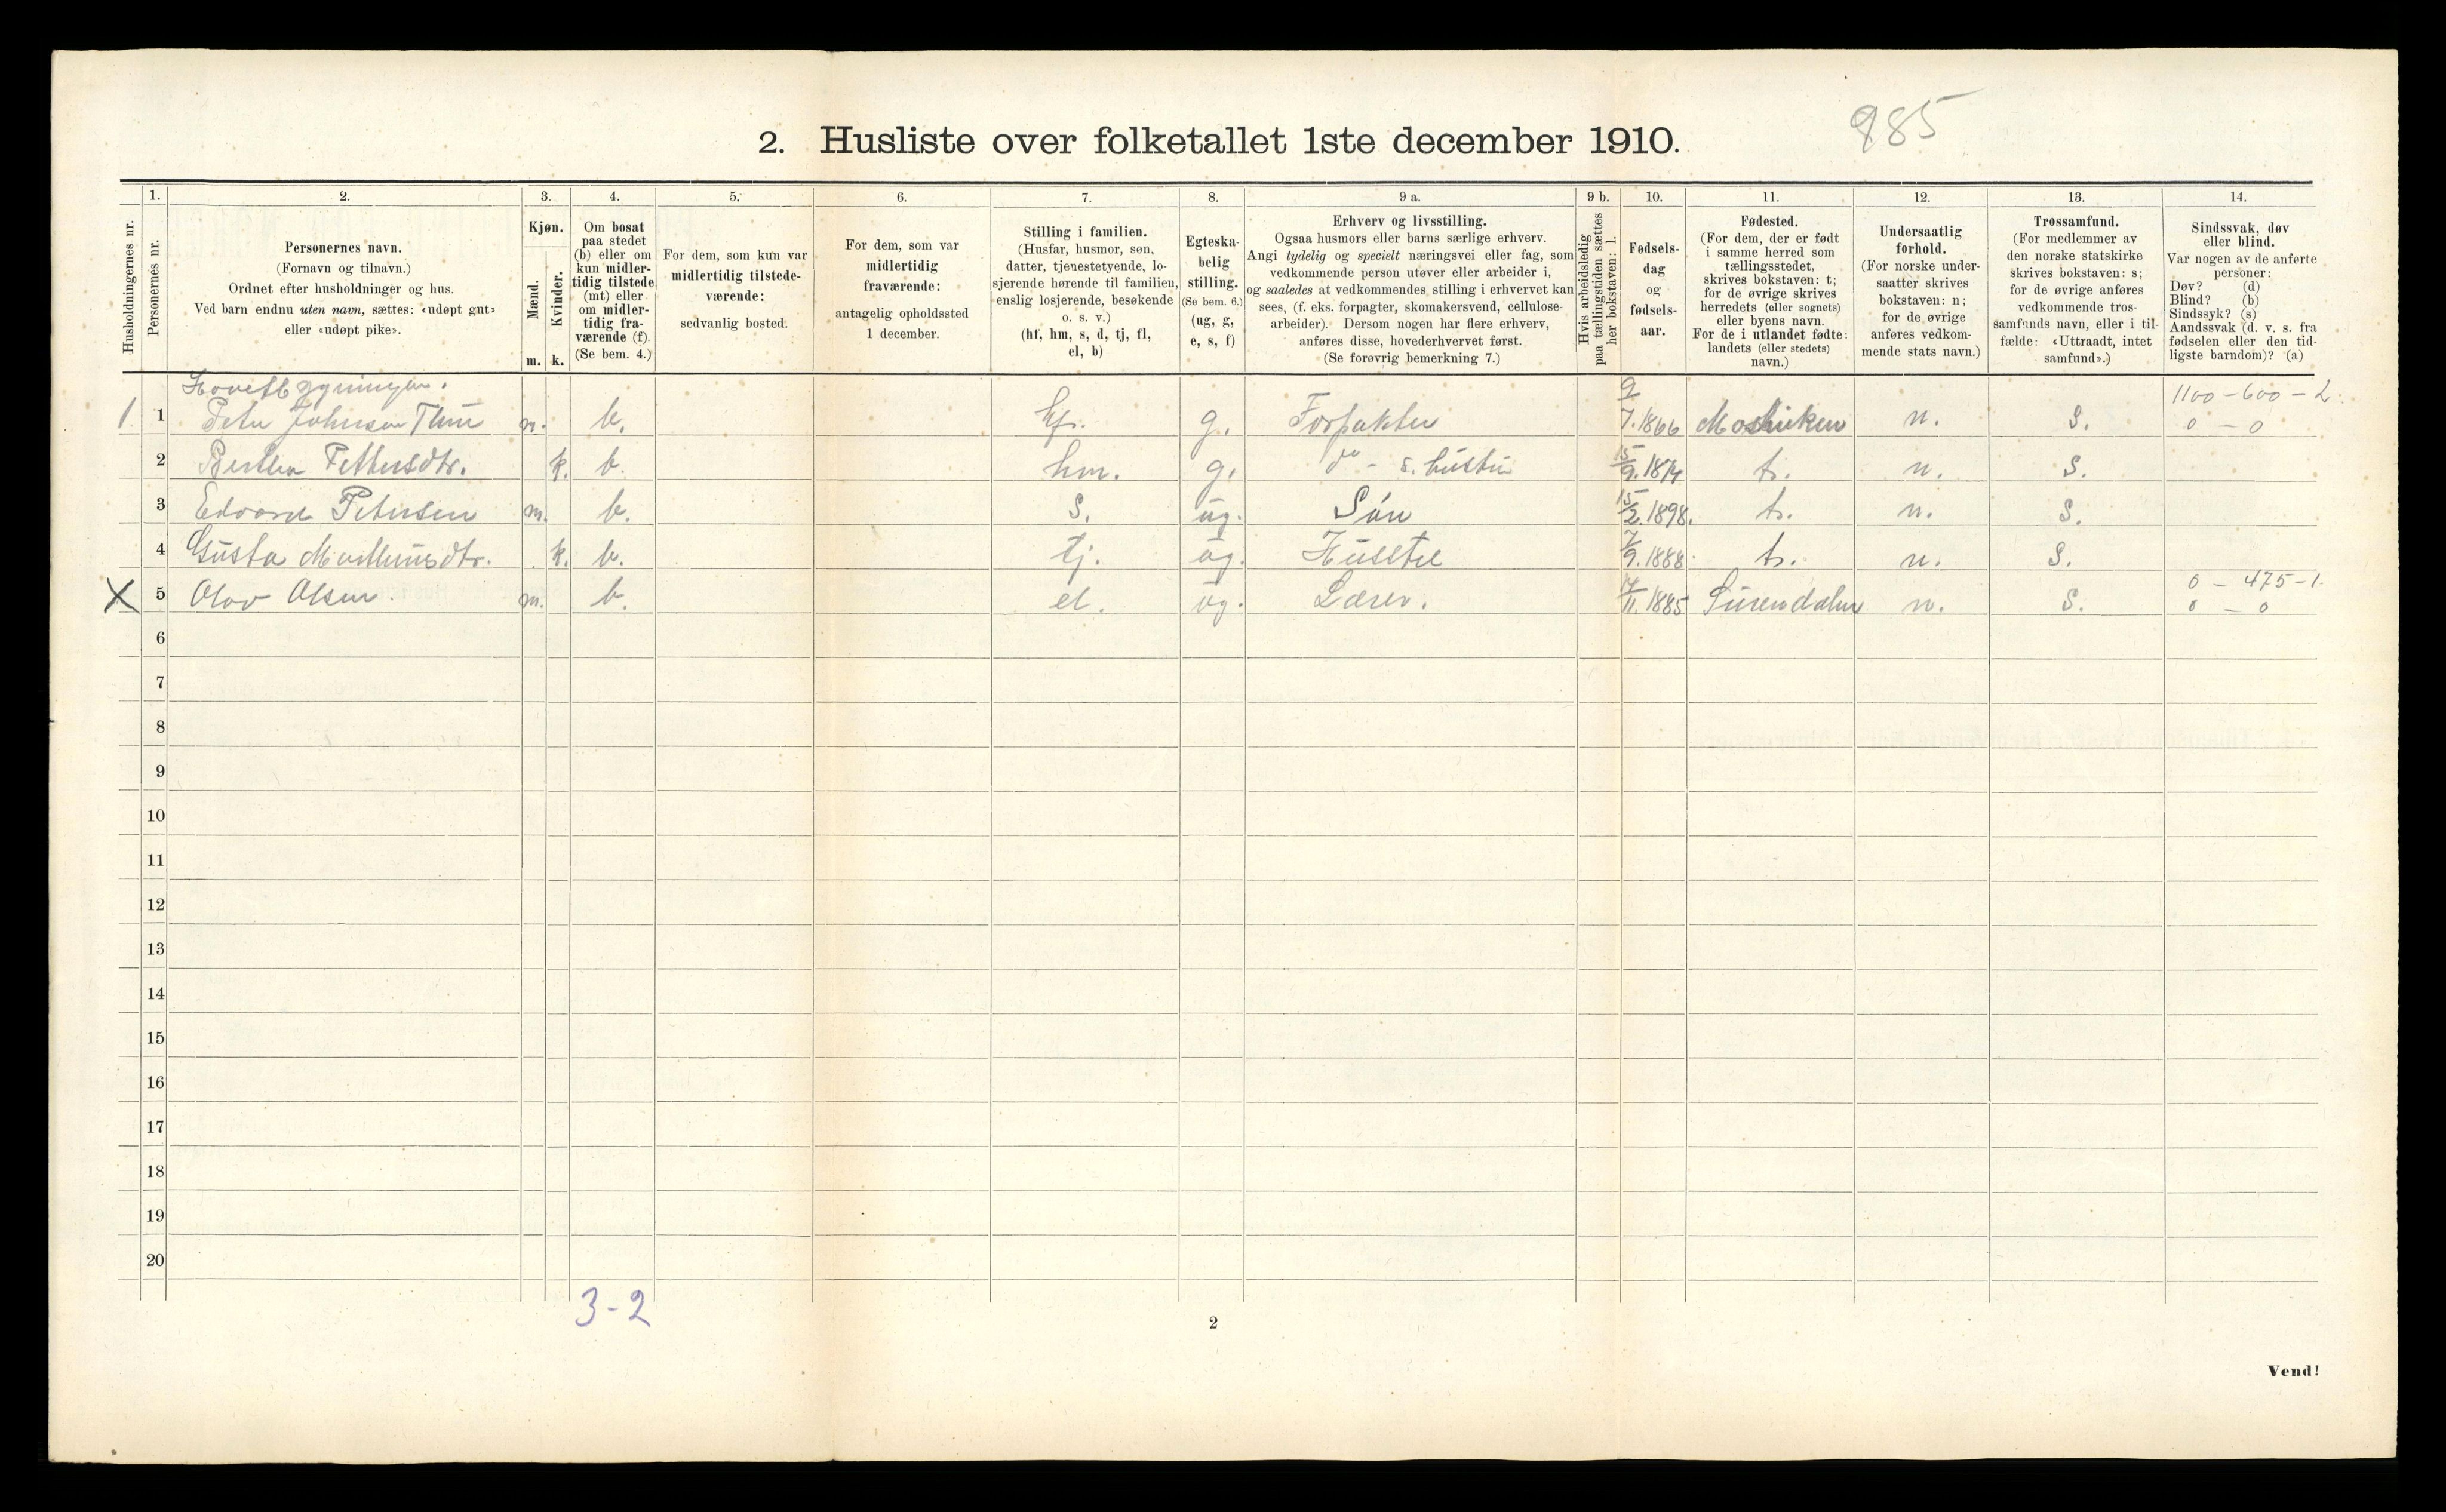 985
2. Husliste over folketallet 1ste december 1910.
Husholdningernes nr.
1.
Personernes nr.
2.
Personernes navn.
(Fornavn og tilnavn.)
Ordnet efter husholdninger og hus.
Ved barn endnu uten navn, sættes: «udøpt gut»
eller «udøpt pike».
3.
Kjøn.
Mænd.
Kvinder.
m. k.
4.
Om bosat
paa stedet
(b) eller om
kun midler-
tidig tilstede
(mt) eller
om midler-
tidig fra-
værende (f).
(Se bem. 4.)
5.
For dem, som kun var
midlertidig tilstede-
værende:
sedvanlig bosted.
6.
For dem, som var
midlertidig
fraværende:
antagelig opholdssted
1 december.
7.
Stilling i familien.
(Husfar, husmor, søn,
datter, tjenestetyende, lo-
sjerende hørende til familien,
enslig losjerende, besøkende
o. s. v.)
(hf, hm, s, d, tj, fl,
el, b)
8.
Egteska-
belig
stilling.
(Se bem. 6.)
(ug, g,
e, s, f)
9 a.
Erhverv og livsstilling.
Ogsaa husmors eller barns særlige erhverv.
Angi tydelig og specielt næringsvei eller fag, som
vedkommende person utøver eller arbeider i,
og saaledes at vedkommendes stilling i erhvervet kan
sees, (f. eks. forpagter, skomakersvend, cellulose-
arbeider). Dersom nogen har flere erhverv,
anføres disse, hovederhvervet først.
(Se forøvrig bemerkning 7.)
9 b.
Hvis arbeidsledig
paa tællingstiden sættes
her bokstaven: l.
10.
Fødsels-
dag
og
fødsels-
aar.
11.
Fødested.
(For dem, der er født
i samme herred som
tællingsstedet,
skrives bokstaven: t;
for de øvrige skrives
herredets (eller sognets)
eller byens navn.
For de i utlandet fødte:
landets (eller stedets)
navn.)
12.
Undersaatlig
forhold.
(For norske under-
saatter skrives
bokstaven: n;
for de øvrige
anføres vedkom-
mende stats navn.)
13.
Trossamfund.
(For medlemmer av
den norske statskirke
skrives bokstaven: s;
for de øvrige anføres
vedkommende tros-
samfunds navn, eller i til-
fælde: «Uttraadt, intet
samfund».)
14.
Sindssvak, døv
eller blind.
Var nogen av de anførte
personer:
Døv? (d)
Blind? (b)
Sindssyk? (s)
Aandssvak (d. v. s. fra
fødselen eller den tid-
ligste barndom)? (a)
Hovetbygningen.
1100 - 600 - 2.
1 1 Peter Johnsen m. b. hf. g. Forpakter 9/7.1866 n. S. 0 - 0
2 Berthea Pettersdtr. k. b. hm. g. do - s. hustru 15/9.1874 t. n. S.
3 Edvard Petersen m. b. S. ug. Søn 15/2.1898. t. n. S.
4 Gusta k. b. tj. ug. Husstel 7/9.1888. t. n. S.
0 - 475 - 1.
X 5 Olav Olsen. m. b. el. ug. Lærer. 11.1885 Surendalen n. S. 0 - 0
6
7
8
9
10
11
12
13
14
15
16
17
18
19
20
3-2
2
Vend!